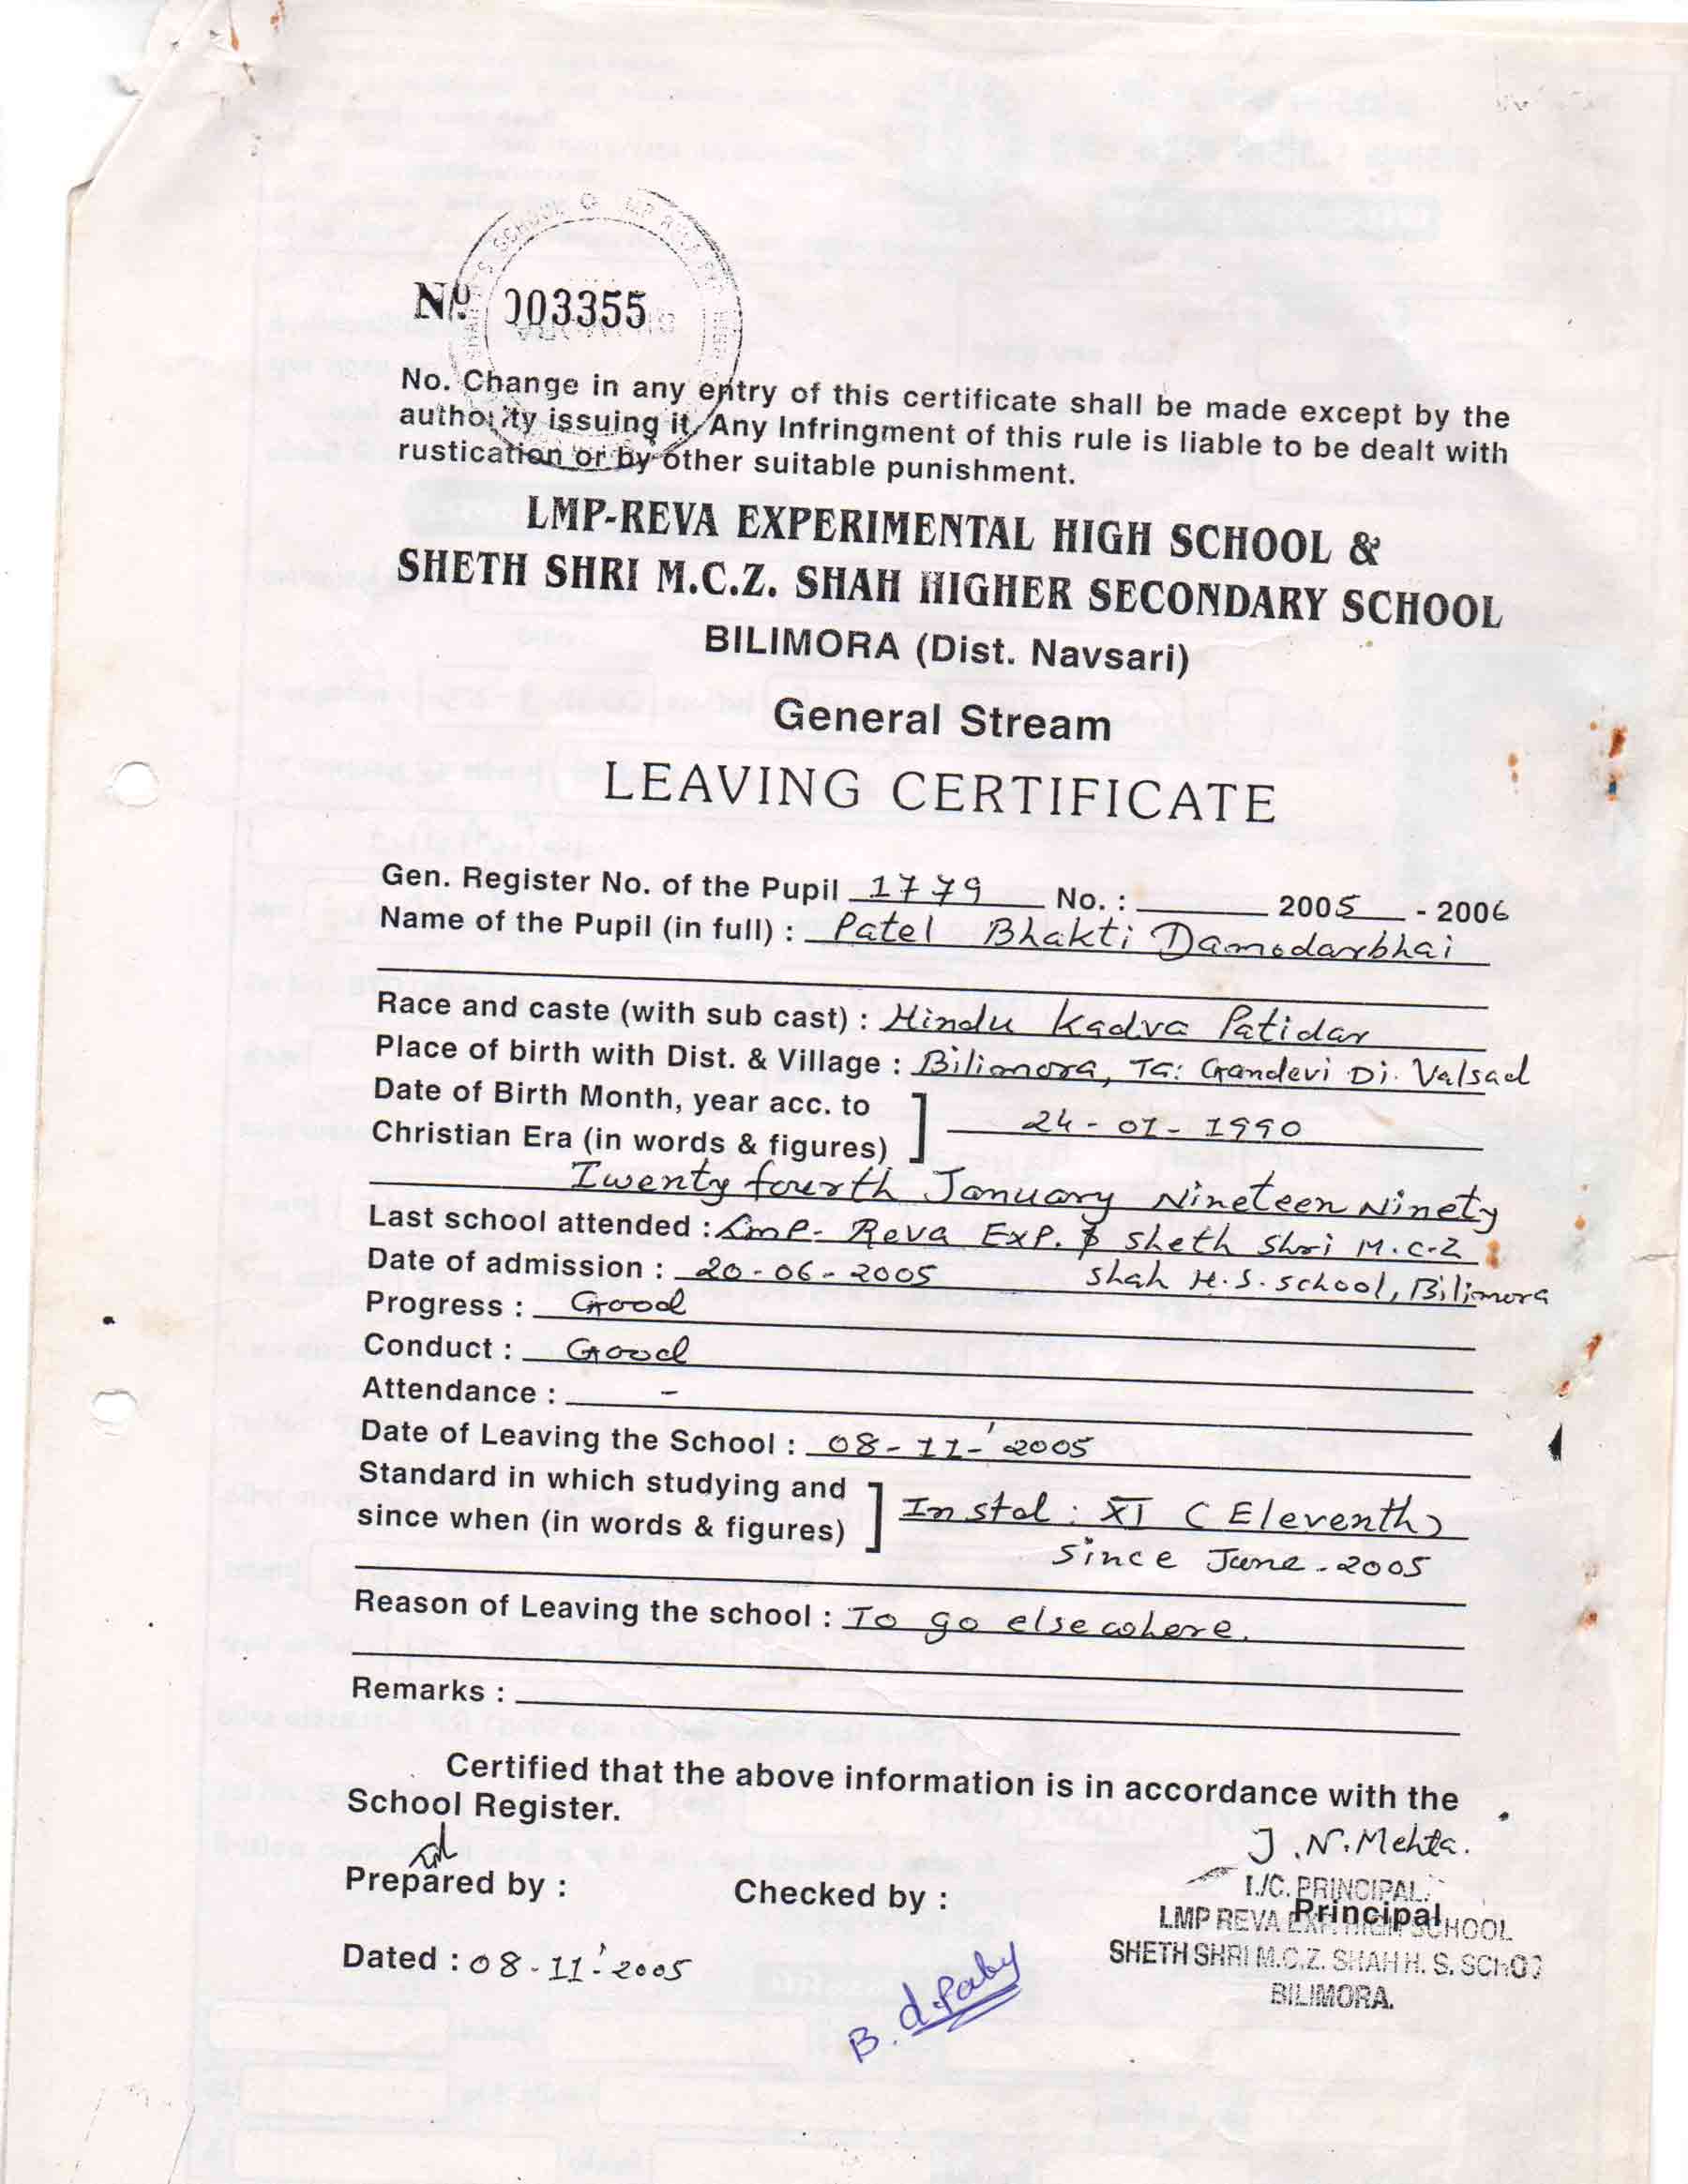 No. 003355
No. Change in any entry of this certificate shall be made except by the
authority issuing it, Any Infringment of this rule is liable to be dealt with
rustication or by other suitable punishment.
LMP-REVA EXPERIMENTAL HIGH SCHOOL &
SHETH SHRI M.C.Z. SHAH HIGHER SECONDARY SCHOOL
BILIMORA (Dist. Navsari)
General Stream
LEAVING CERTIFICATE
Gen. Register No. of the Pupil 1779 No. : 2005 - 2006
Name of the Pupil (in full) : Patel Bhakti Damodarbhai
Race and caste (with sub cast) : Hindu Kadva Patidar
Place of birth with Dist. & Village : Bilimora, Ta: Gandevi Di. Valsad
Date of Birth Month, year acc. to
Christian Era (in words & figures) ] 24-01-1990
Twenty fourth January Nineteen Ninety
Last school attended : Lmp. Reva Exp. & Sheth Shri M.C.Z
Date of admission : 20-06-2005 Shah H.S. School, Bilimora
Progress : Good
Conduct : Good
Attendance : -
Date of Leaving the School : 08-11-'2005
Standard in which studying and
since when (in words & figures) ] In std : XI (Eleventh)
since June-2005
Reason of Leaving the school : To go elsewhere.
Remarks :
Certified that the above information is in accordance with the
School Register.
J.N.Mehta.
Prepared by : Checked by : Principal
I./C. PRINCIPAL.
LMP REVA EXP. HIGH SCHOOL
SHETH SHRI M.C.Z. SHAH H. S. SCHOO
BILIMORA.
Dated : 08-11-'2005